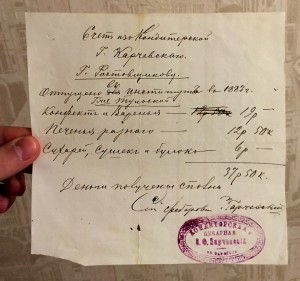 Счетъ изъ Кондитерской
Г. Карчевскаго.
Г. Ростовщикову.
Отпущено въ 1882 г.
Для Тульской
Конфектъ и Варенья — 19 р —
Печенья разного — 12 р 50 к
Сухарей, сушекъ и булокъ — 6 р —
37 р 50 к.
Деньги получены сполна
Карчевский
КОНДИТЕРСКАЯ
ПЕКАРНАЯ